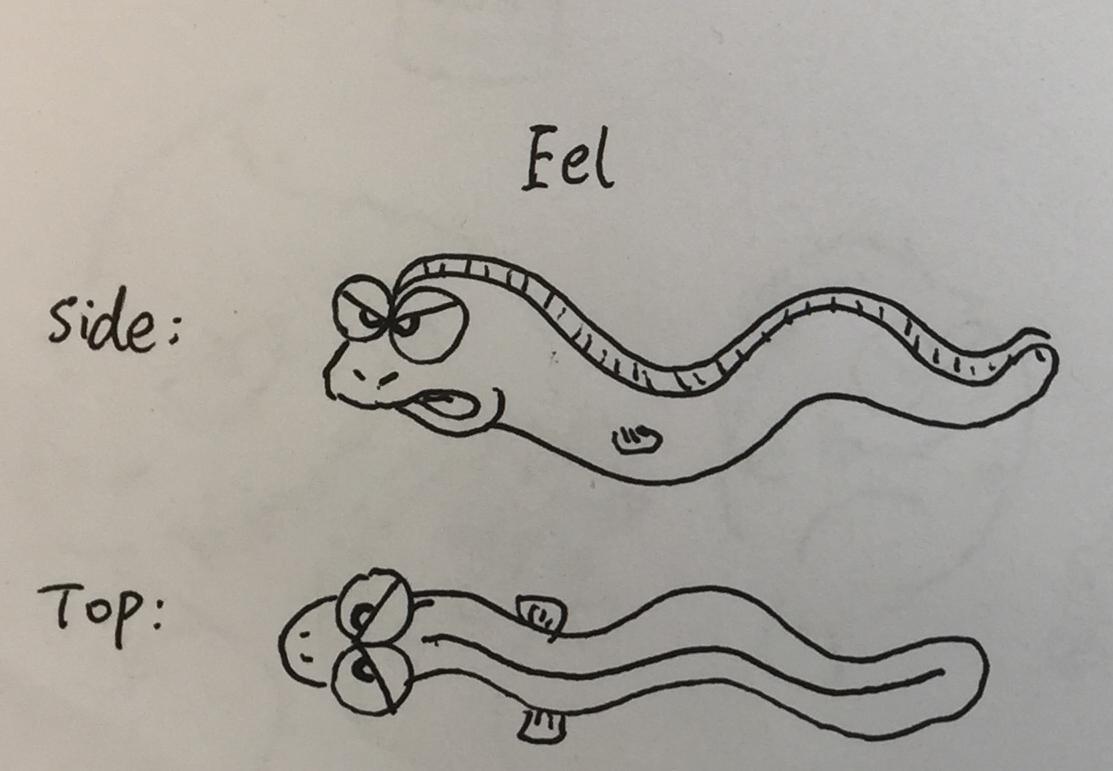 Eel
side:
Top: